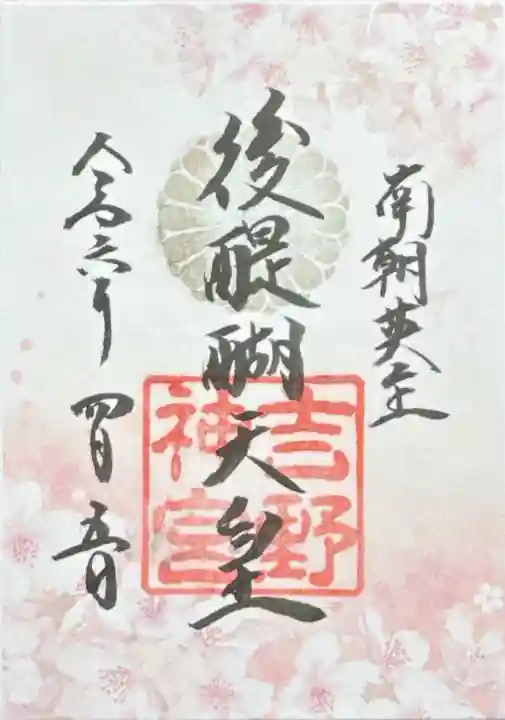 南朝英主
後醍醐天皇
吉野
神宮
令和六年 四月 五日